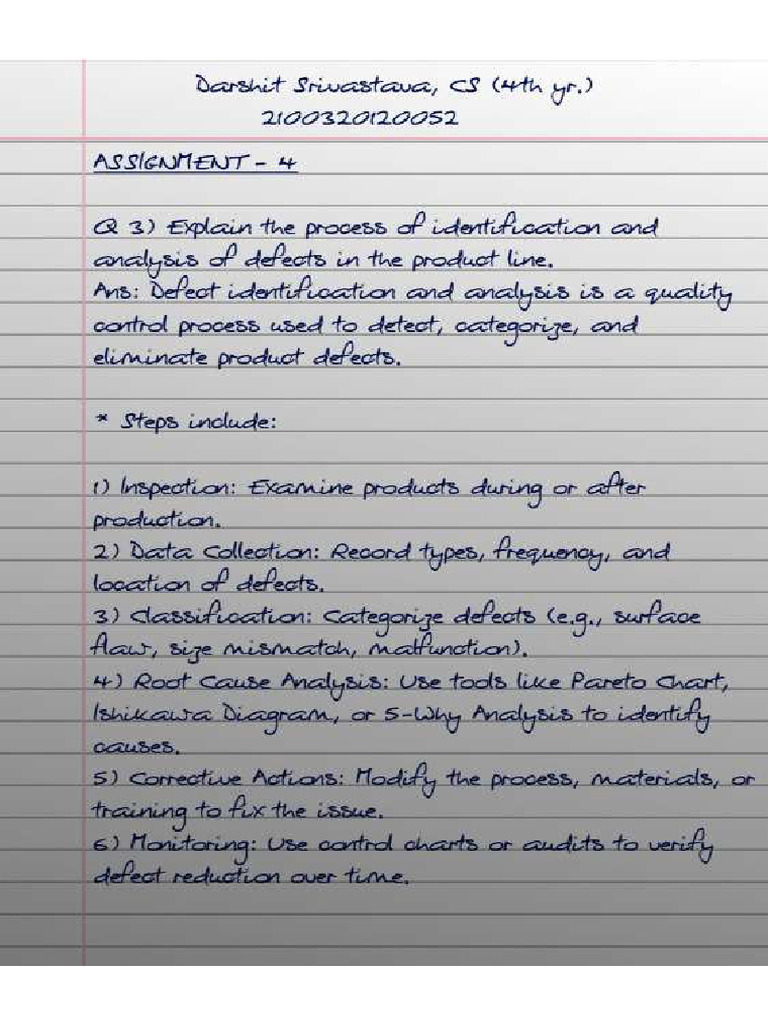 Darshit Srivastava, CS (4th yr.)
2100320120052
ASSIGNMENT - 4
Q 3) Explain the process of identification and
analysis of defects in the product line.
Ans: Defect identification and analysis is a quality
control process used to detect, categorize, and
eliminate product defects.
* Steps include:
1) Inspection: Examine products during or after
production.
2) Data Collection: Record types, frequency, and
location of defects.
3) Classification: Categorize defects (e.g., surface
flaw, size mismatch, malfunction).
4) Root Cause Analysis: Use tools like Pareto Chart,
Ishikawa Diagram, or 5-Why Analysis to identify
causes.
5) Corrective Actions: Modify the process, materials, or
training to fix the issue.
6) Monitoring: Use control charts or audits to verify
defect reduction over time.